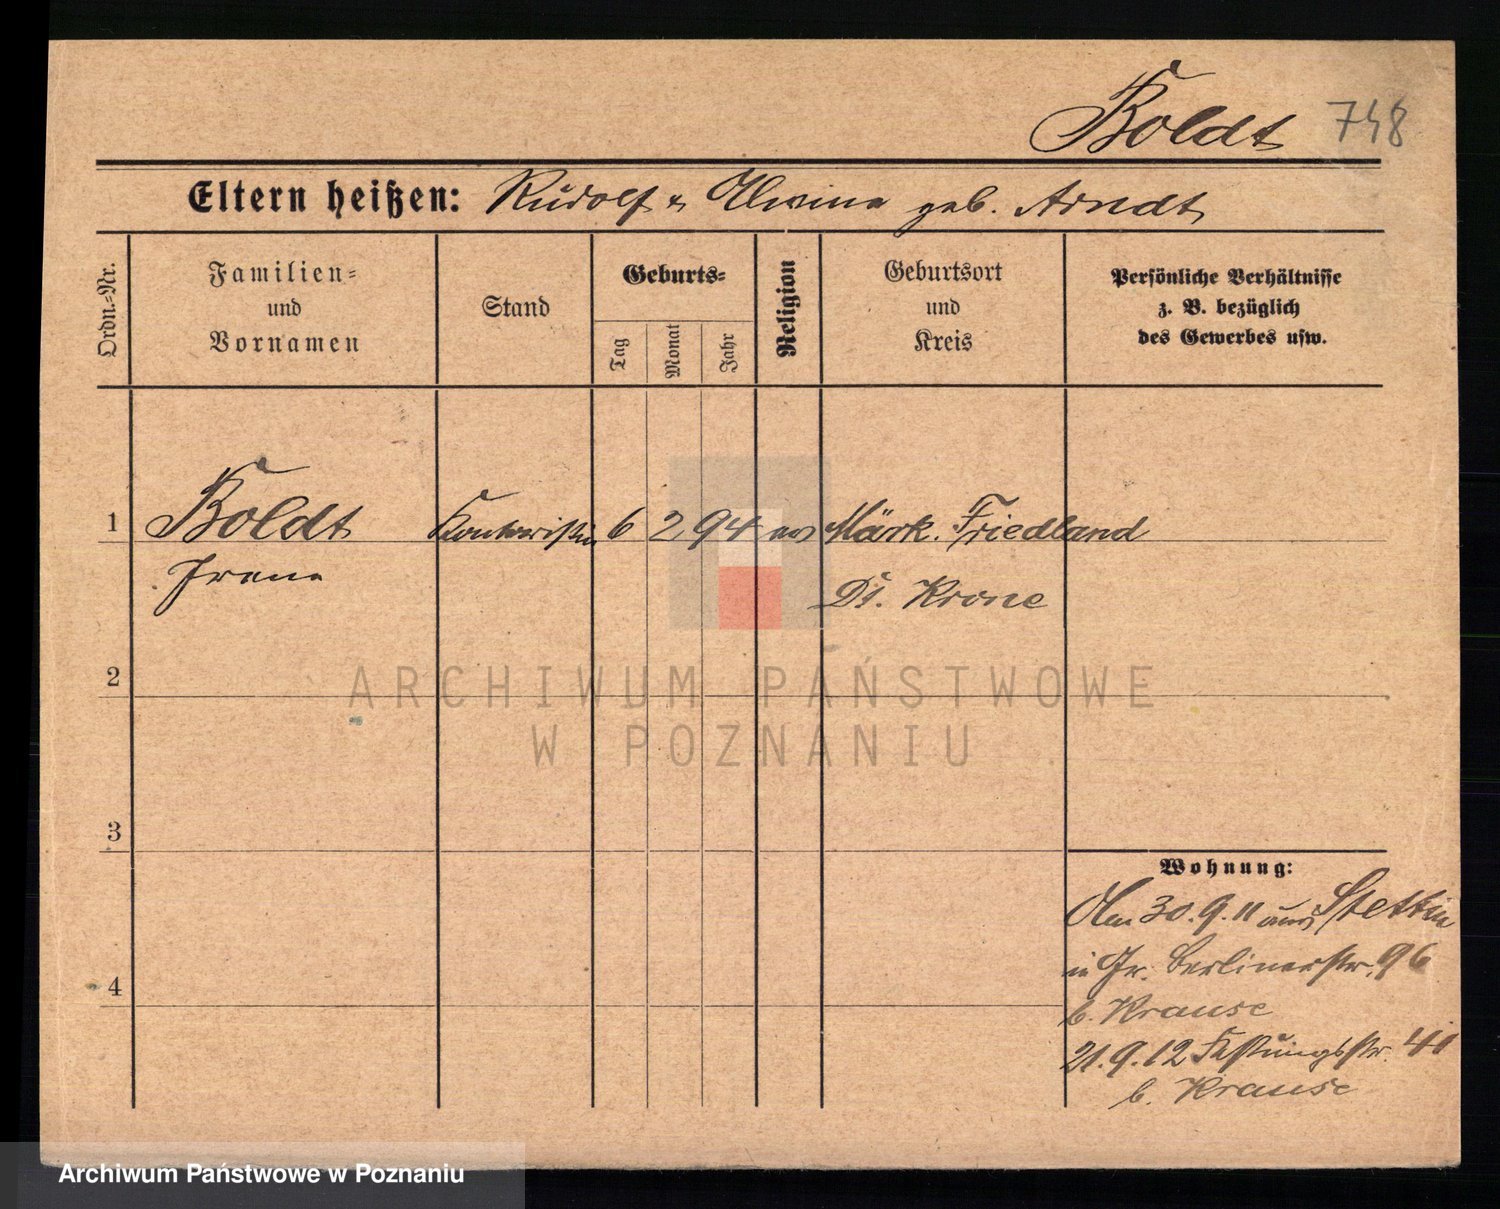 Boldt 748
Eltern heißen: Rudolf u Alwine geb. Arndt
Ordn.=Nr.
Familien=
und
Vornamen
Stand
Geburts=
Tag
Monat
Jahr
Religion
Geburtsort
und
Kreis
Persönliche Verhältnisse
z. B. bezüglich
des Gewerbes usw.
1 Boldt Kontoristin 6 2 94 ev Märk. Friedland
Irene Dt. Krone
2
3
4
Wohnung:
Am 30.9.11 aus Stettin
in Jr. Berlinerstr. 96
b. Krause
21.9.12 Festungsstr. 41
b. Krause
ARCHIWUM PAŃSTWOWE
W POZNANIU
Archiwum Państwowe w Poznaniu